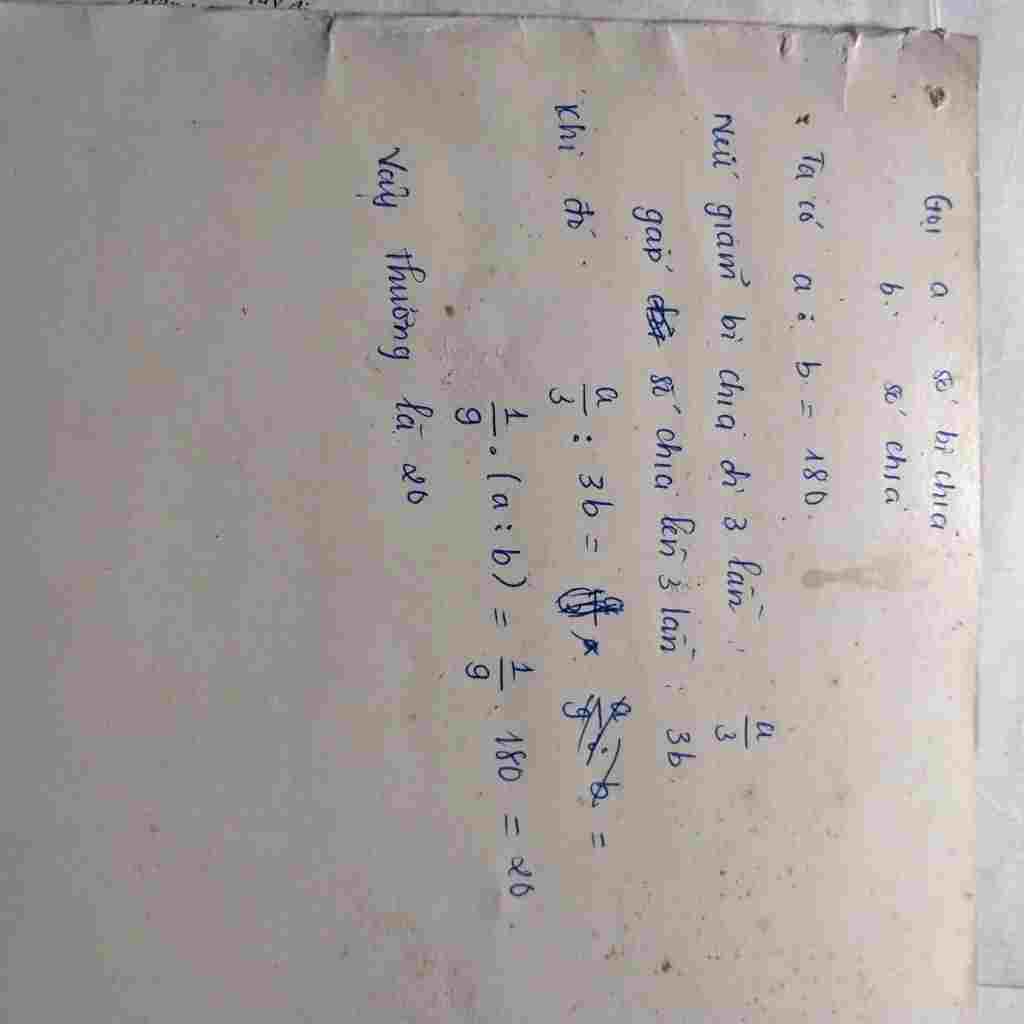 Gọi a: số bị chia
b: số chia
Ta có a : b = 180.
Nếu giảm bị chia đi 3 lần: a/3
gấp số chia lên 3 lần: 3b.
Khi đó.
a/3 : 3b = =
1/9 . (a : b) = 1/9 . 180 = 20
Vậy thường là 20